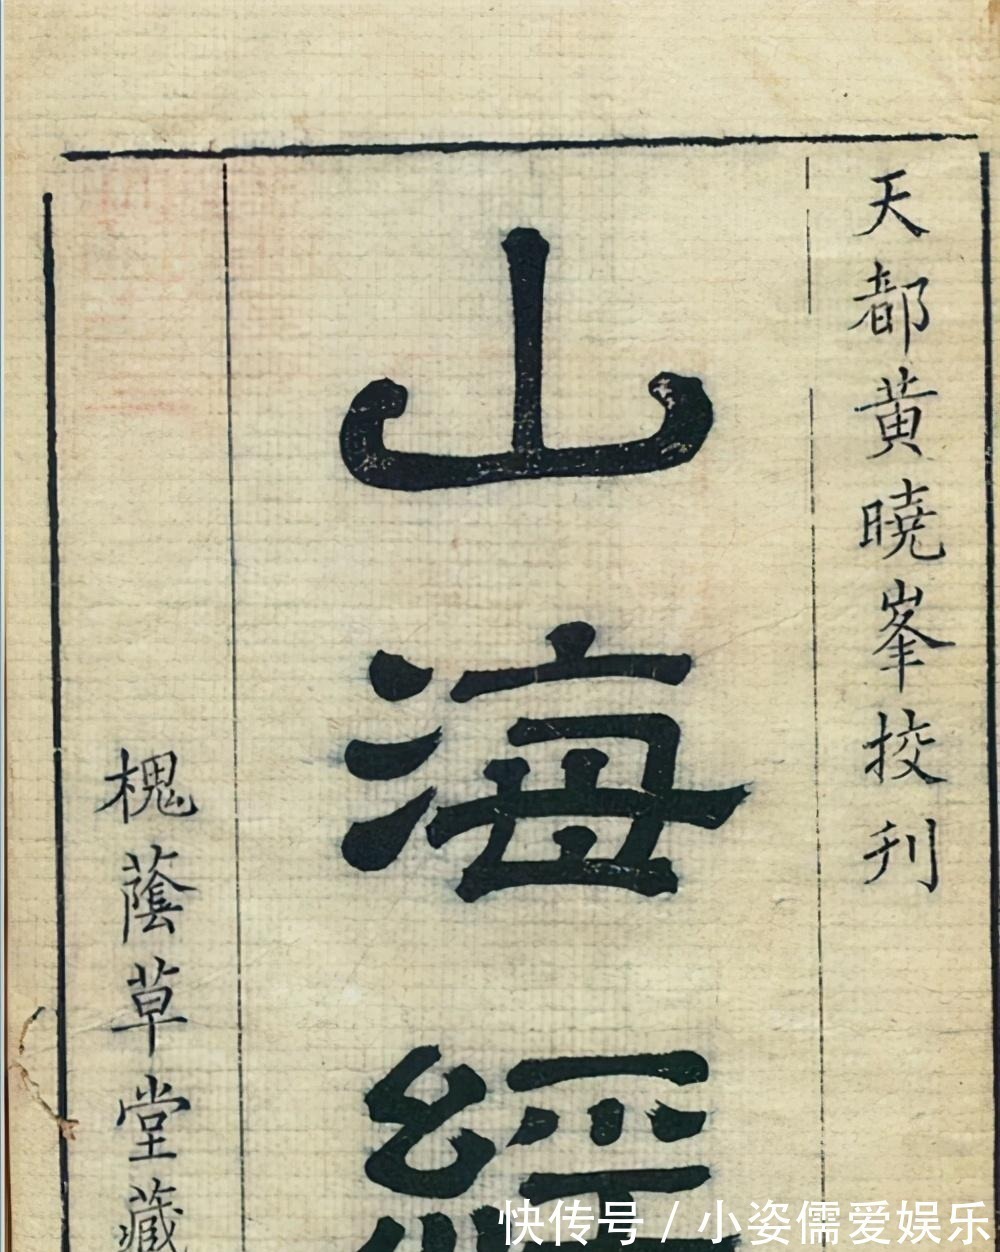 天都黄曉峯挍刋
山海經
槐蔭草堂藏
快传号 / 小姿儒爱娱乐